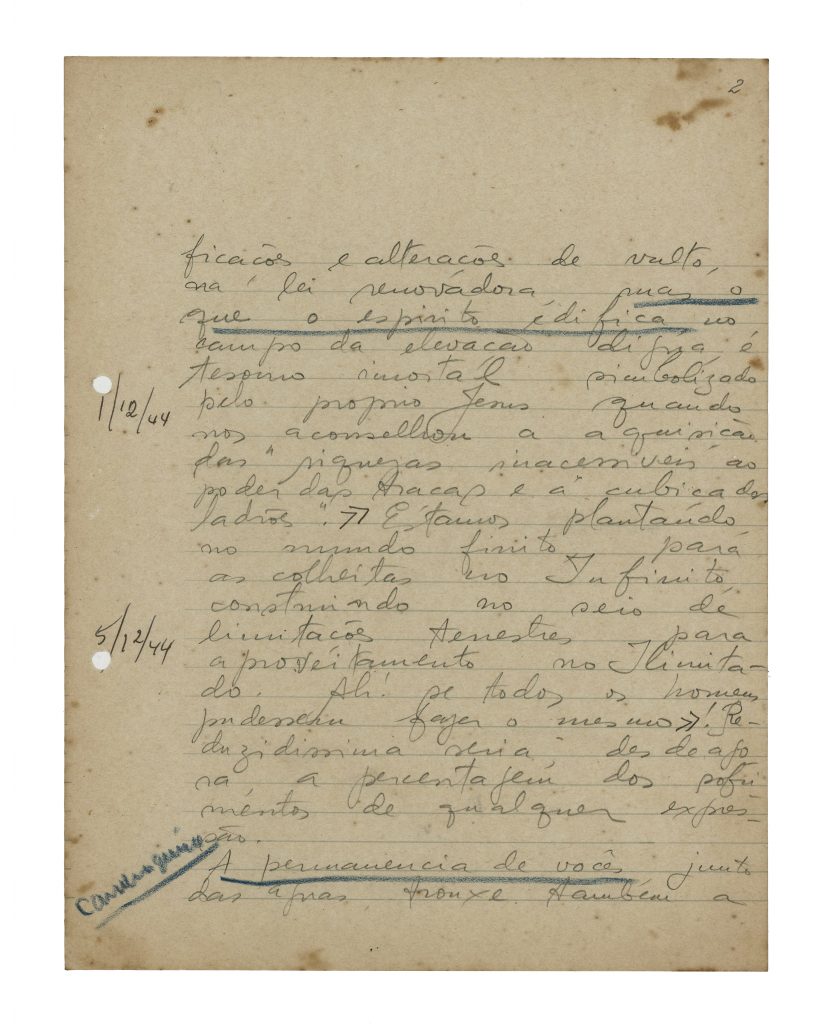 2
ficacões e alteracões de vulto,
na lei renovadora, mas o
que o espirito edifica no
campo da elevacão digna é
tesouro imortal simbolizado
1/12/44
pelo proprio Jesus quando
nos aconselhou a aquisicão
das "riquezas inacessiveis ao
poder das tracas e á cubica dos
ladrões". >> Estamos plantando
no mundo finito para
as colheitas no Infinito,
construindo no seio de
5/12/44
limitacões terrestres para
aproveitamento no Ilimita-
do. Ah! se todos os homens
pudessem fazer o mesmo >>! Re-
duzidissima seria desde ago
ra a percentagem dos sofri
mentos de qualquer expres-
são.
A permanencia de vocês junto
das aguas, trouxe tambem a